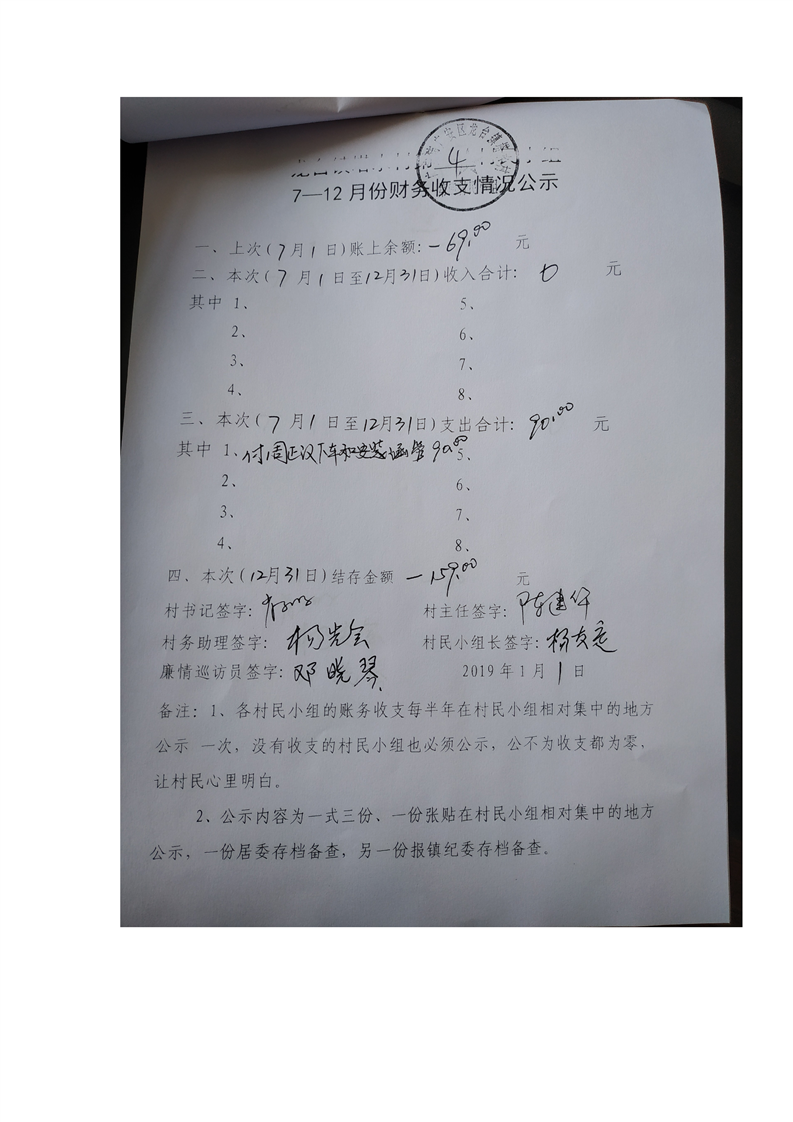 广安区龙台镇
4
7—12月份财务收支情况公示
一、上次(7月1日)账上余额:-69.00 元
二、本次(7月1日至12月31日)收入合计: 0 元
其中 1、 5、
2、 6、
3、 7、
4、 8、
三、本次(7月1日至12月31日)支出合计: 90.00 元
其中 1、付周正汉下车和安装涵管90.00 5、
2、 6、
3、 7、
4、 8、
四、本次(12月31日)结存金额 -159.00 元
村书记签字: 村主任签字:陈建
村务助理签字: 杨光全 村民小组长签字:杨友定
廉情巡访员签字:邓晓琴 2019年1月1日
备注:1、各村民小组的账务收支每半年在村民小组相对集中的地方
公示 一次，没有收支的村民小组也必须公示，公不为收支都为零，
让村民心里明白。
2、公示内容为一式三份、一份张贴在村民小组相对集中的地方
公示，一份居委存档备查，另一份报镇纪委存档备查。